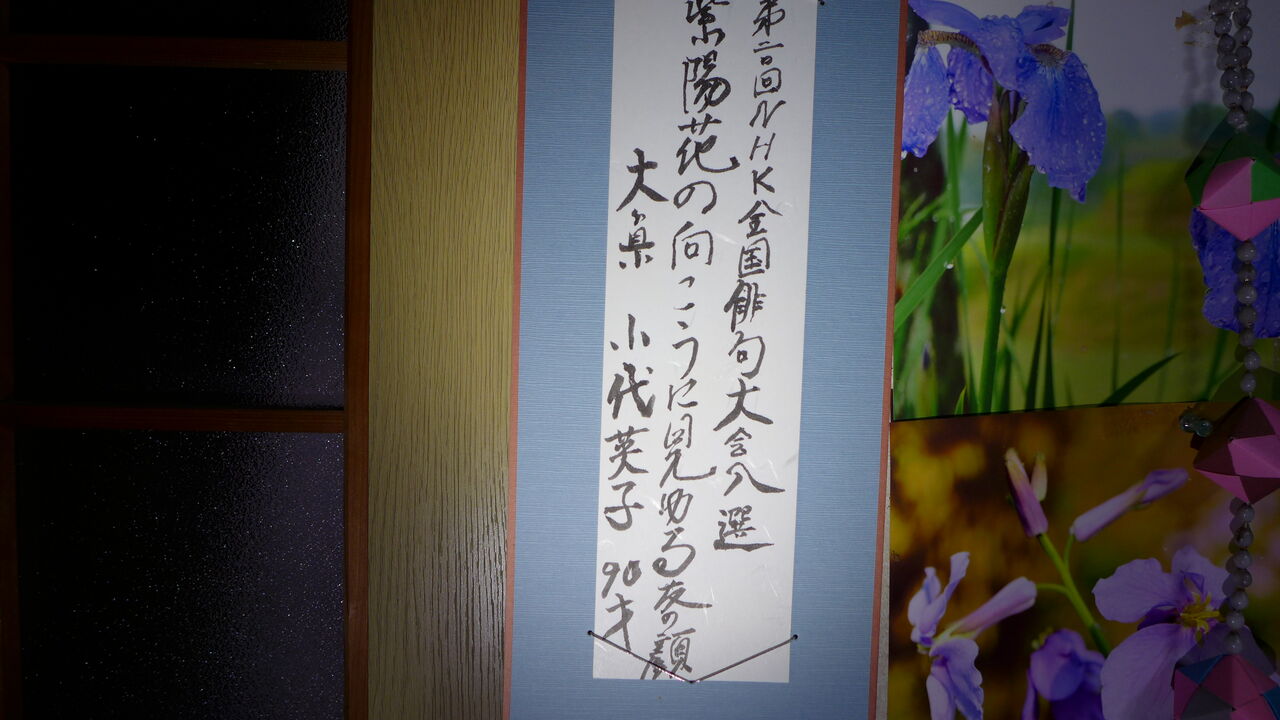 第二回NHK全国俳句大会入選
紫陽花の向こうに見ゆる友の顔
大泉 小代英子 90才